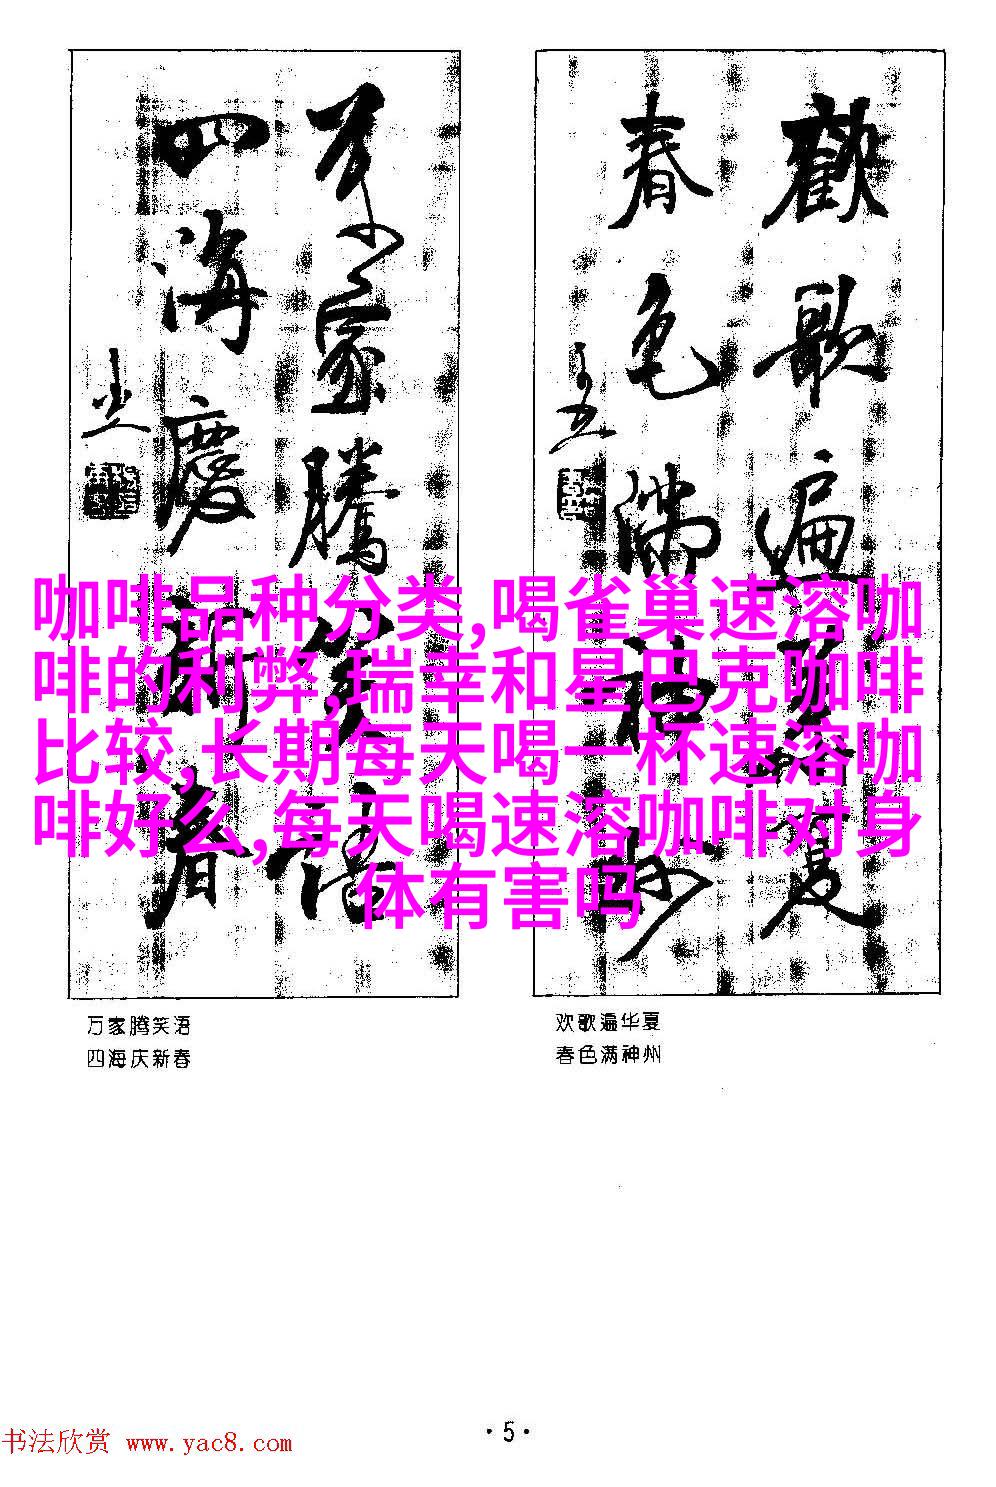 歡歌遍華夏
春色滿神州
萬家騰笑語
四海慶新春
咖啡品种分类,喝雀巢速溶咖
啡的利弊,瑞幸和星巴克咖啡
比较,长期每天喝一杯速溶咖
啡好么,每天喝速溶咖啡对身
体有害吗
万家腾笑语
四海庆新春
欢歌遍华夏
春色满神州
·5·
书法欣赏 www.yac8.com